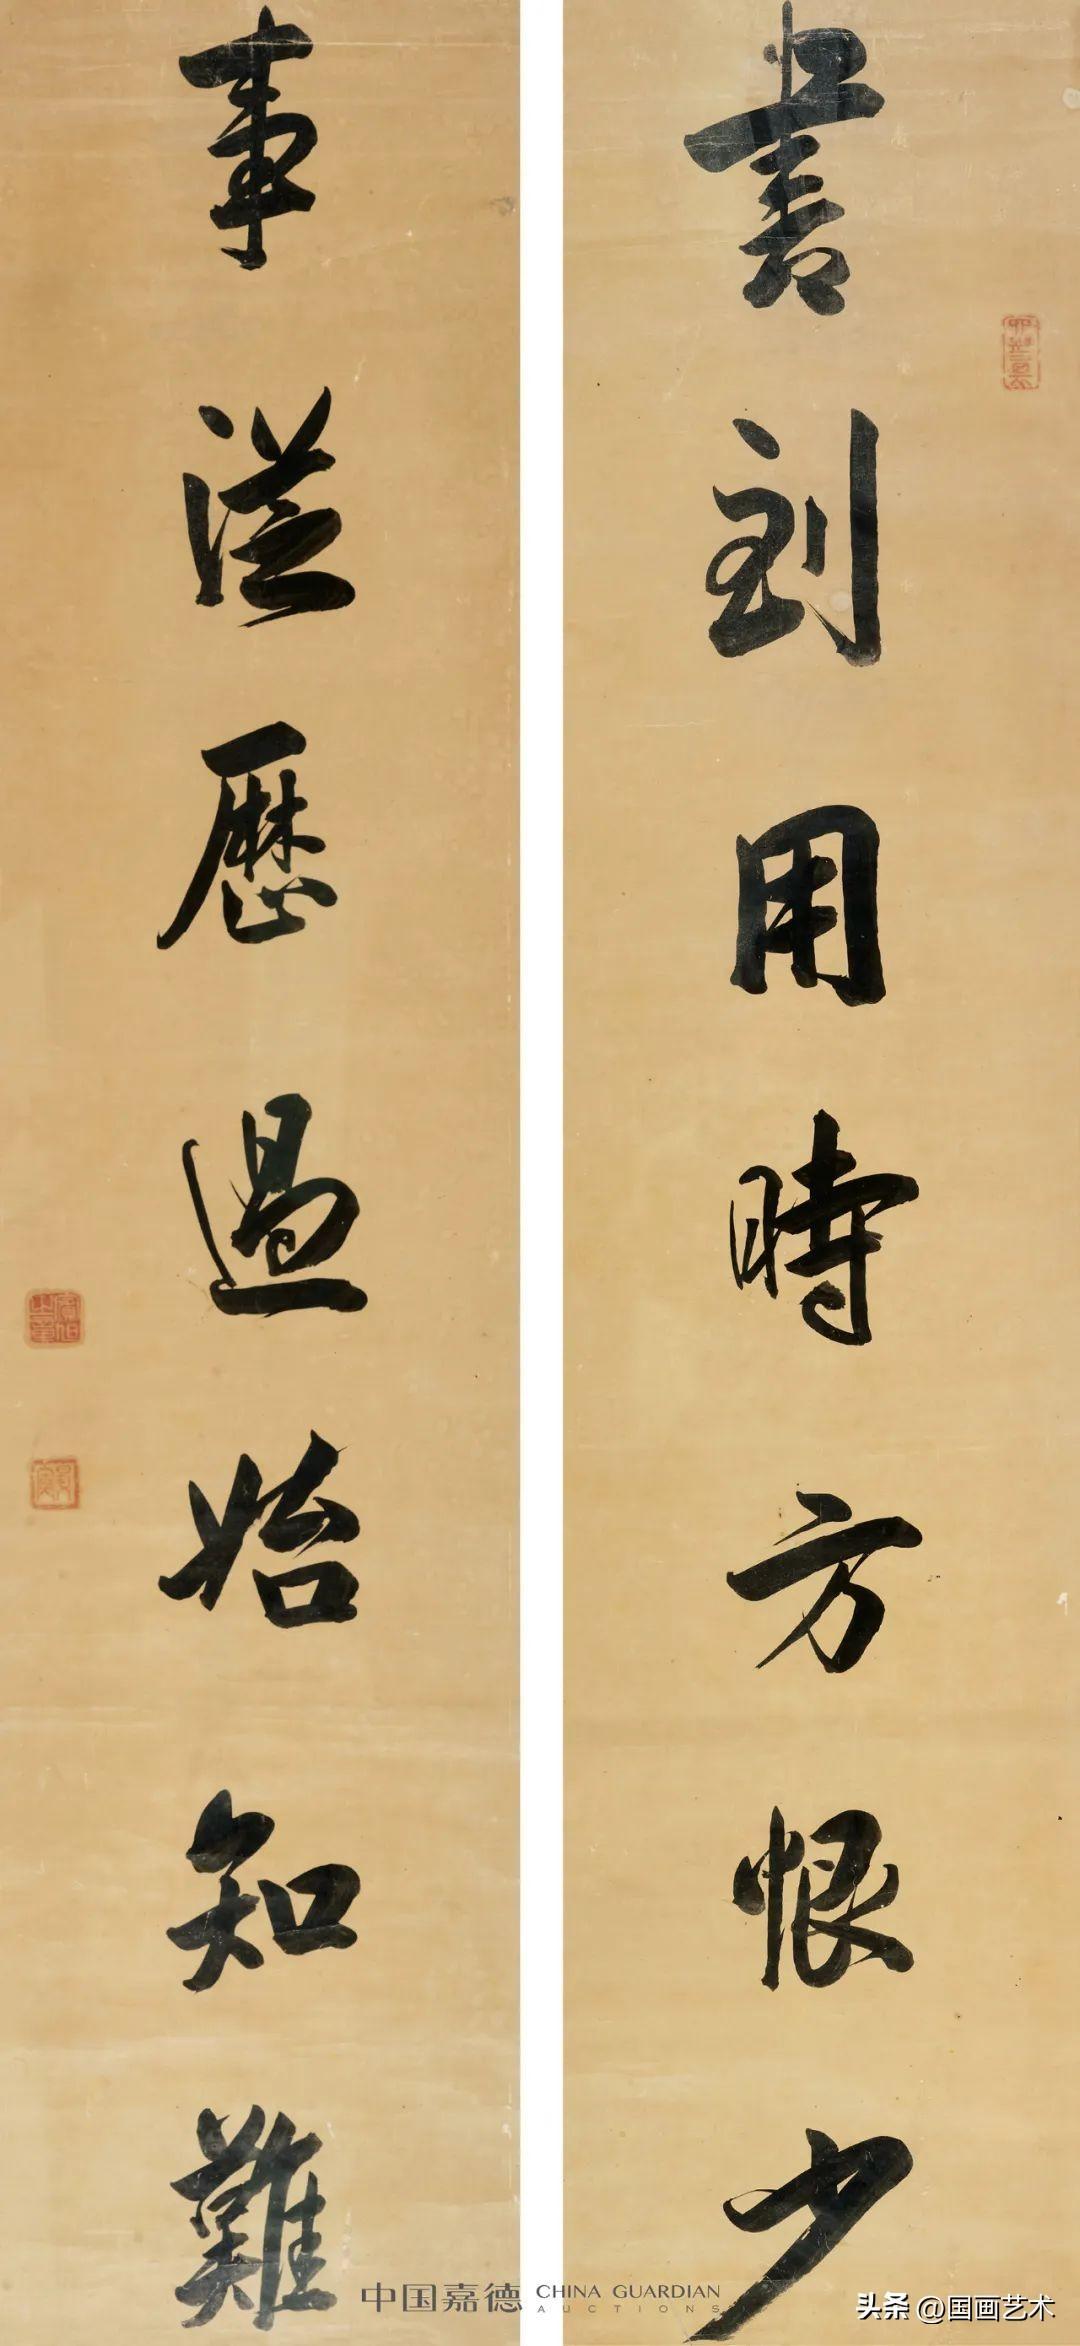 書到用時方恨少
事從歷過始知難
中国嘉德 CHINA GUARDIAN
AUCTIONS
头条 @国画艺术